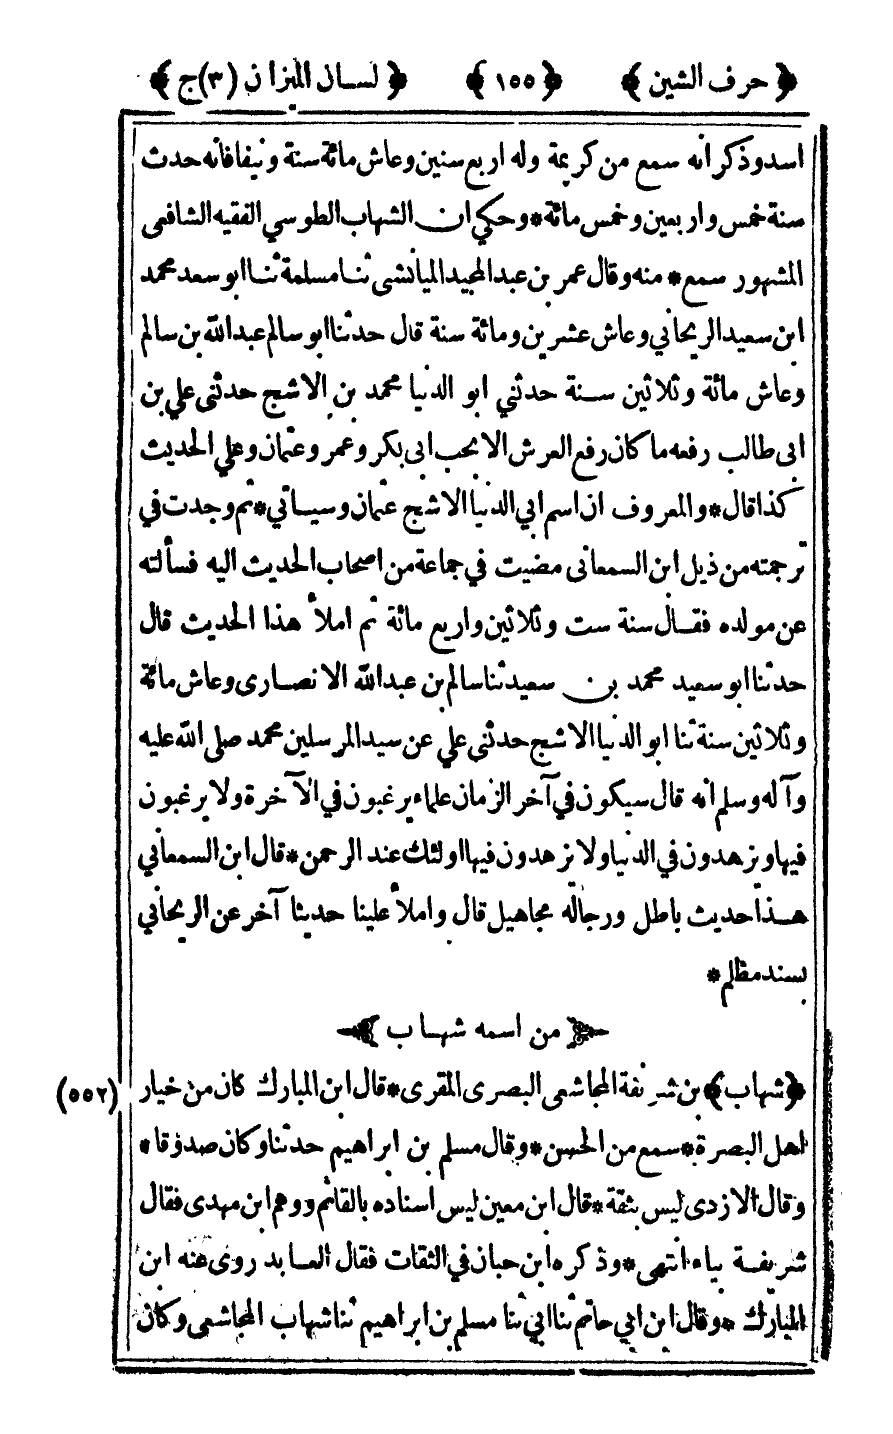 ﴿ حرف الشين ﴾ ﴿ ١٥٥ ﴾ ﴿ لسان الميزان (٣)ج ﴾
اسد وذكر انه سمع من كريمة وله اربع سنين وعاش مائة سنة ونيفا فانه حدث
سنة خمس واربعين وخمس مائة * وحكي ان الشهاب الطوسي الفقيه الشافعى
المشهور سمع * منه وقال عمر بن عبد المجيد الميانشى ثنا مسلمة ثنا ابو سعد محمد
ابن سعيد الريحاني وعاش عشرين ومائة سنة قال حدثنا ابو سالم عبد الله بن سالم
وعاش مائة وثلاثين سنة حدثني ابو الدنيا محمد بن الاشج حدثنى علي بن
ابى طالب رفعه ما كان رفع العرش الا بحب ابى بكر وعمر وعثمان وعلي الحديث
كذا قال * والمعروف ان اسم ابي الدنيا الاشج عثمان وسياتي * ثم وجدت في
ترجمته من ذيل ابن السمعانى مضيت في جماعة من اصحاب الحديث اليه فسألته
عن مولده فقال سنة ست وثلاثين واربع مائة ثم املأ هذا الحديث قال
حدثنا ابو سعيد محمد بن سعيد ثنا سالم بن عبد الله الانصارى وعاش مائة
وثلاثين سنة ثنا ابو الدنيا الاشج حدثنى علي عن سيد المرسلين محمد صلى الله عليه
وآله وسلم انه قال سيكون في آخر الزمان علماء يرغبون في الآخرة ولا يرغبون
فيها ويزهدون في الدنيا ولا يزهدون فيها اولئك عند الرحمن * قال ابن السمعاني
هذا حديث باطل ورجاله مجاهيل قال واملأ علينا حديثا آخر عن الريحاني
بسند مظلم *
من اسمه شهاب
﴿شهاب﴾ بن شريفة المجاشعى البصرى المقرى * قال ابن المبارك كان من خيار (٥٥٢)
اهل البصرة * سمع من الحسن * وقال مسلم بن ابراهيم حدثنا وكان صدوقا *
وقال الازدى ليس بثقة * قال ابن معين ليس اسناده بالقائم ووهم ابن مهدى فقال
شريفة بياء انتهى * وذكره ابن حبان في الثقات فقال العابد روى عنه ابن
المبارك * وقال ابن ابي حاتم ثنا ابي ثنا مسلم بن ابراهيم ثنا شهاب المجاشعى وكان